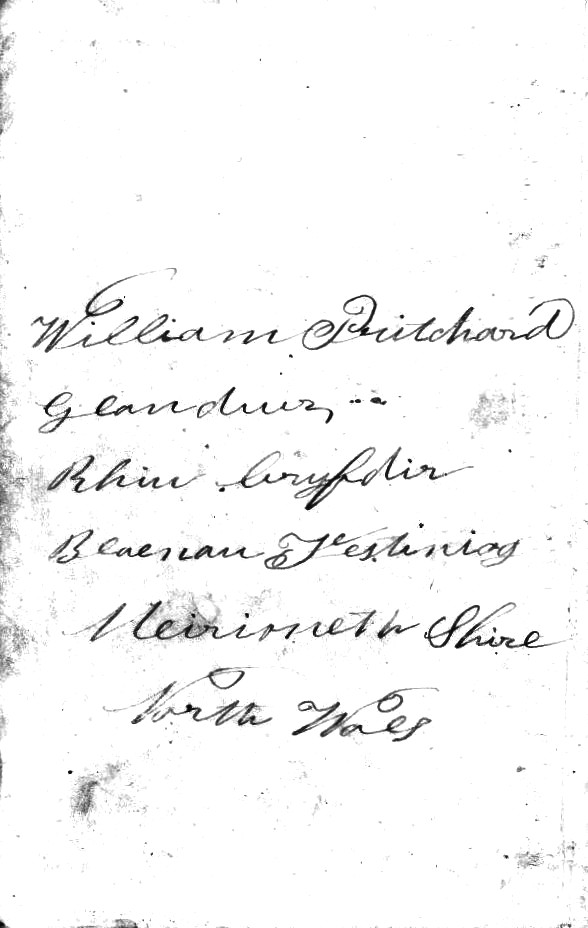 William Pritchard
Glandwr,
Rhiw bryfdir
Blaenau Festiniog
Meirioneth Shire
North Wales